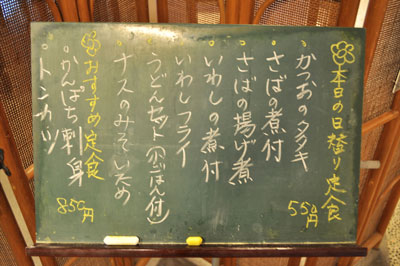 本日の日替り定食
550円
・かつおのタタキ
・さばの煮付
・さばの揚げ煮
・いわしの煮付
・いわしフライ
・うどんセット(小ごはん付)
・ナスのみそいため
おすすめ定食
850円
・かんぱち刺身
・トンカツ